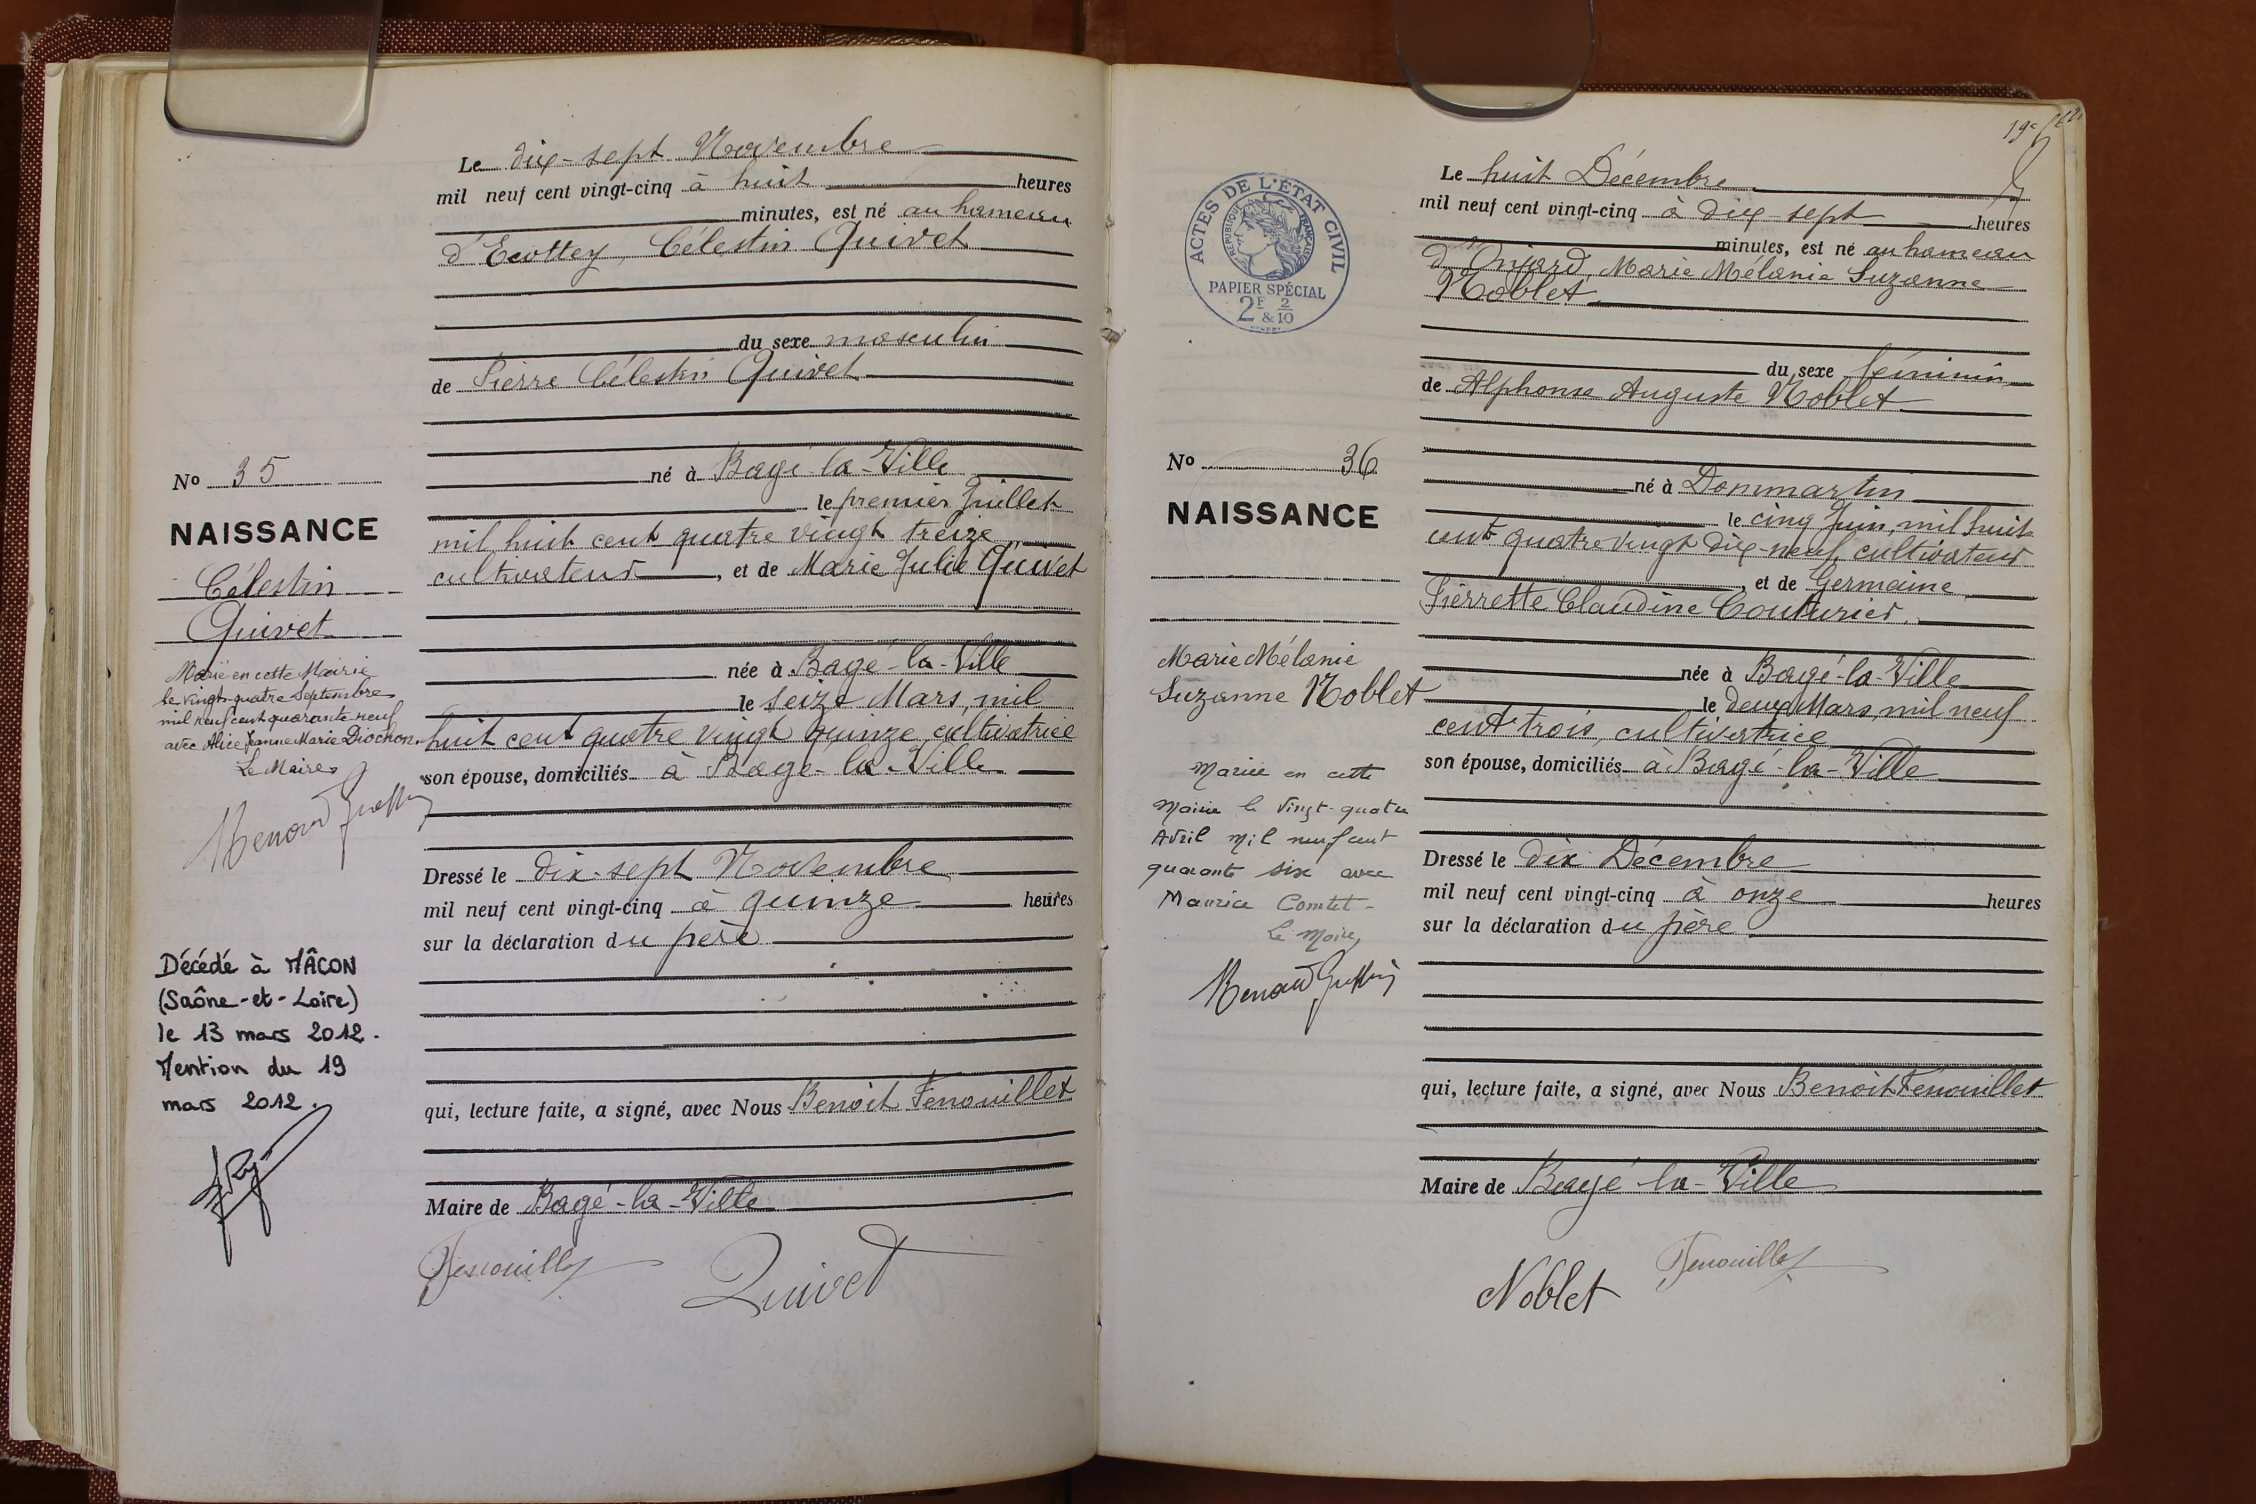 Le dix-sept Novembre
mil neuf cent vingt-cinq à huit heures
minutes, est né au hameau
d'Ecottey, Célestin Quivet
du sexe masculin
de Pierre Célestin Quivet
né à Bagé-la-Ville
le premier Juillet
mil huit cent quatre vingt treize
cultivateur, et de Marie Julie Quivet
née à Bagé-la-Ville
le seize Mars, mil
huit cent quatre vingt quinze, cultivatrice
son épouse, domiciliés à Bagé-la-Ville
Dressé le dix-sept Novembre
mil neuf cent vingt-cinq à quinze heures
sur la déclaration du père
qui, lecture faite, a signé, avec Nous Benoit Fenouillet
Maire de Bagé-la-Ville
Fenouillet
Quivet
No 35
NAISSANCE
Célestin
Quivet
Marié en cette Mairie
le vingt-quatre Septembre
mil neuf cent quarante neuf
avec Alice Jeanne Marie Diochon.
Le Maire,
Décédé à MÂCON
(Saône-et-Loire)
le 13 mars 2012.
Mention du 19
mars 2012.
19e
ACTES DE L'ÉTAT CIVIL
RÉPUBLIQUE FRANÇAISE
PAPIER SPÉCIAL
2F & 2/10
Le huit Décembre
mil neuf cent vingt-cinq à dix-sept heures
minutes, est né au hameau
Marie Mélanie Suzanne
Noblet
du sexe féminin
de Alphonse Auguste Noblet
né à Dommartin
le cinq Juin, mil huit
cent quatre vingt dix-neuf, cultivateur
, et de Germaine
Pierrette Claudine Couturier.
née à Bagé-la-Ville
le deux Mars, mil neuf
cent trois, cultivatrice
son épouse, domiciliés à Bagé-la-Ville
Dressé le dix Décembre
mil neuf cent vingt-cinq à onze heures
sur la déclaration du père
qui, lecture faite, a signé, avec Nous Benoit Fenouillet
Maire de Bagé-la-Ville
Noblet
Fenouillet
No 36
NAISSANCE
Marie Mélanie
Suzanne Noblet
Mariée en cette
Mairie le vingt-quatre
Avril mil neuf cent
quarante six avec
Maurice Comtet-
Le Maire,